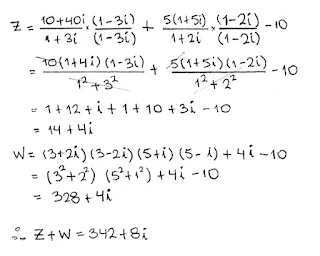 Z = \frac{10+40i}{1+3i} \cdot \frac{(1-3i)}{(1-3i)} + \frac{5(1+5i)}{1+2i} \cdot \frac{(1-2i)}{(1-2i)} - 10
= \frac{10(1+4i)(1-3i)}{1^2+3^2} + \frac{5(1+5i)(1-2i)}{1^2+2^2} - 10
= 1+12+i+1+10+3i-10
= 14+4i
W = (3+2i)(3-2i)(5+i)(5-i)+4i-10
= (3^2+2^2)(5^2+1^2)+4i-10
= 328+4i
∴ Z+W = 342+8i